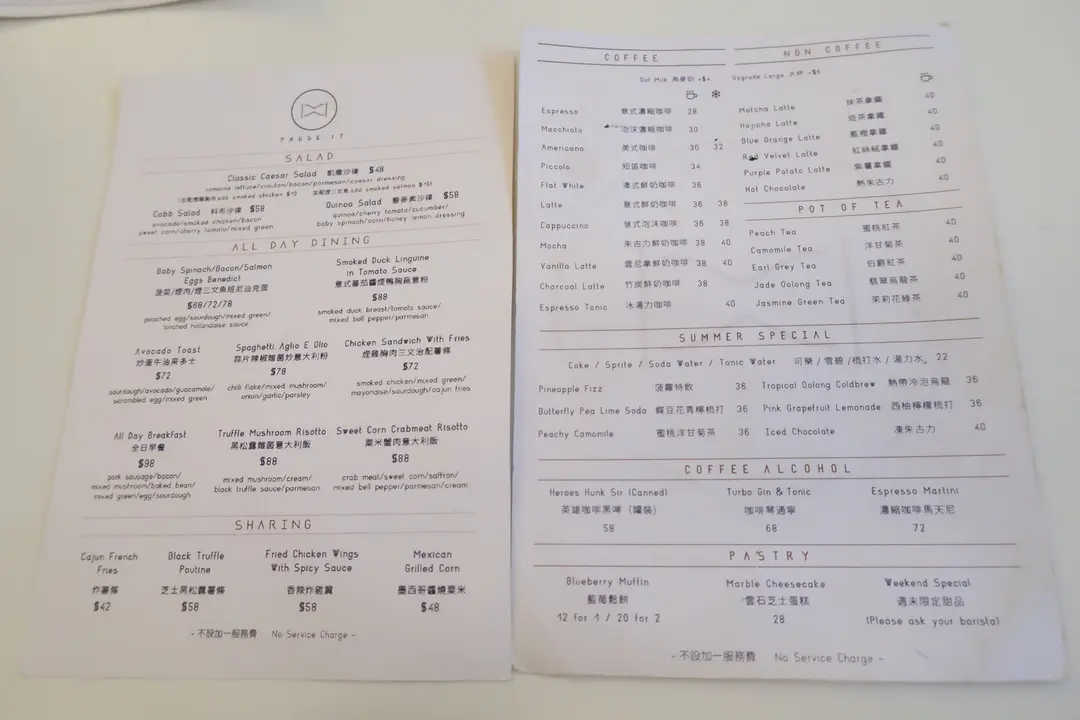 PAUSE IT
SALAD
Classic Caesar Salad 凱撒沙律 $48
romaine lettuce/crouton/bacon/parmesan/caesar dressing
add smoked chicken $12 add smoked salmon $15)
Cobb Salad 科布沙律 $58
avocado/smoked chicken/bacon
sweet corn/cherry tomato/mixed green
Quinoa Salad 藜麥素沙律 $58
quinoa/cherry tomato/cucumber/
baby spinach/corn/honey lemon dressing
ALL DAY DINING
Baby Spinach/Bacon/Salmon
Eggs Benedict
菠菜/煙肉/煙三文魚班尼迪克蛋
$68/72/78
poached egg/sourdough/mixed green/
torched hollandaise sauce
Smoked Duck Linguine
in Tomato Sauce
意式蕃茄醬煙鴨胸扁意粉
$88
smoked duck breast/tomato sauce/
mixed bell pepper/parmesan
Avocado Toast
炒蛋牛油果多士
$72
sourdough/avocado/guacamole/
scrambled egg/mixed green
Spaghetti Aglio E Olio
蒜片辣椒雜菌炒意大利粉
$78
chili flake/mixed mushroom/
onion/garlic/parsley
Chicken Sandwich With Fries
煙雞胸肉三文治配薯條
$72
smoked chicken/mixed green/
mayonaise/sourdough/cajun fries
All Day Breakfast
全日早餐
$98
pork sausage/bacon/
mixed mushroom/baked bean/
mixed green/egg/sourdough
Truffle Mushroom Risotto
黑松露雜菌意大利飯
$88
mixed mushroom/cream/
black truffle sauce/parmesan
Sweet Corn Crabmeat Risotto
粟米蟹肉意大利飯
$88
crab meat/sweet corn/saffron/
mixed bell pepper/parmesan/cream
SHARING
Cajun French
Fries
炸薯條
$42
Black Truffle
Poutine
芝士黑松露薯條
$58
Fried Chicken Wings
With Spicy Sauce
香辣炸雞翼
$58
Mexican
Grilled Corn
墨西哥醬燒粟米
$48
- 不設加一服務費 No Service Charge -
COFFEE
Oat Milk 燕麥奶 +$4
Espresso 意式濃縮咖啡 28
Macchiato 泡沫濃縮咖啡 30
Americano 美式咖啡 30 32
Piccolo 短笛咖啡 34
Flat White 澳式鮮奶咖啡 36
Latte 意式鮮奶咖啡 36 38
Cappuccino 意式泡沫咖啡 36 38
Mocha 朱古力鮮奶咖啡 38 40
Vanilla Latte 雲尼拿鮮奶咖啡 38 40
Charcoal Latte 竹炭鮮奶咖啡 38
Espresso Tonic 冰湯力咖啡 40
NON COFFEE
Upgrade Large 大杯 +$5
Matcha Latte 抹茶拿鐵 40
Hojicha Latte 焙茶拿鐵 40
Blue Orange Latte 藍橙拿鐵 40
Red Velvet Latte 紅絲絨拿鐵 40
Purple Potato Latte 紫薯拿鐵 40
Hot Chocolate 熱朱古力 40
POT OF TEA
Peach Tea 蜜桃紅茶 40
Camomile Tea 洋甘菊茶 40
Earl Grey Tea 伯爵紅茶 40
Jade Oolong Tea 翡翠烏龍茶 40
Jasmine Green Tea 茉莉花綠茶 40
SUMMER SPECIAL
Coke / Sprite / Soda Water / Tonic Water 可樂 / 雪碧 / 梳打水 / 湯力水 22
Pineapple Fizz 菠蘿特飲 36
Butterfly Pea Lime Soda 蝶豆花青檸梳打 36
Peachy Camomile 蜜桃洋甘菊茶 36
Tropical Oolong Coldbrew 熱帶冷泡烏龍 36
Pink Grapefruit Lemonade 西柚檸檬梳打 36
Iced Chocolate 凍朱古力 40
COFFEE ALCOHOL
Heroes Hunk Sir (Canned)
英雄咖啡黑啤 (罐裝)
58
Turbo Gin & Tonic
咖啡琴通寧
68
Espresso Martini
濃縮咖啡馬天尼
72
PASTRY
Blueberry Muffin
藍莓鬆餅
12 for 1 / 20 for 2
Marble Cheesecake
雲石芝士蛋糕
28
Weekend Special
週末限定甜品
(Please ask your barista)
- 不設加一服務費 No Service Charge -